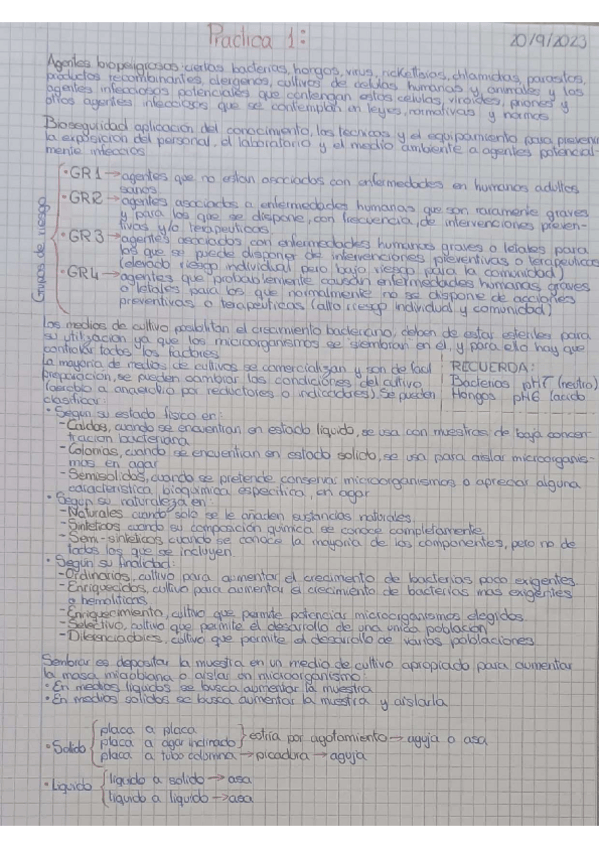 Practica 1:
20/9/2023
Agentes biopeligrosos: ciertas bacterias, hongos, virus, rickettsias, chlamidias, parasitos,
productos recombinantes, alergenos, cultivos de celulas humanas y animales y los
agentes infecciosos potenciales que contengan estas celulas, viroides, priones y
otros agentes infecciosos que se contemplan en leyes, normativas y normas
Bioseguridad aplicación del conocimiento, las tecnicas y el equipamiento para prevenir
la exposición del personal, el laboratorio y el medio ambiente a agentes potencial-
mente infeccios
Grupos de riesgo
· GR1 → agentes que no estan asociados con enfermedades en humanos adultos
sanos
· GR2 → agentes asociados a enfermedades humanas que son raramente graves
y para los que se dispone, con frecuencia, de intervenciones preven-
tivas y/o terapeuticas
· GR3 → agentes asociados con enfermedades humanas graves o letales para
los que se puede disponer de intervenciones preventivas o terapeuticas
(elevado riesgo individual pero bajo riesgo para la comunidad)
· GR4 → agentes que probablemente causan enfermedades humanas, graves
o letales para los que normalmente no se dispone de acciones
preventivas o terapeuticas (alto riesgo individual y comunidad)
Los medios de cultivo posibilitan el crecimiento bacteriano, deben de estar esteriles para
su utilización ya que los microorganismos se siembran en el, y para ello hay que
controlar todos los factores
La mayoria de medios de cultivos se comercializan y son de facil
preparación, se pueden cambiar las condiciones del cultivo
(aerobio a anaerobio por reductores o indicadores). Se pueden
clasificar:
RECUERDA:
Bacterias pH7 (neutro)
Hongos pH6 (acido)
· Segun su estado fisico en:
- Caldos, cuando se encuentran en estado liquido, se usa con muestras de baja concen-
tracion bacteriana
- Colonias, cuando se encuentran en estado solido, se usa para aislar microorganis-
mos en agar
- Semisolidos, cuando se pretende conservar microorganismos o apreciar alguna
caracteristica bioquimica especifica, en agar
· Segun su naturaleza en:
- Naturales cuando solo se le añaden sustancias naturales
- Sinteticos cuando su composición quimica se conoce completamente
- Semi-sinteticos cuando se conoce la mayoria de los componentes, pero no de
todos los que se incluyen
· Segun su finalidad:
- Ordinarios, cultivo para aumentar el crecimiento de bacterias poco exigentes
- Enriquecidos, cultivo para aumentar el crecimiento de bacterias mas exigentes
o hemoliticas
- Enriquecimiento, cultivo que permite potenciar microorganismos elegidos
- Selectivo, cultivo que permite el desarrollo de una unica población
- Diferenciables, cultivo que permite el desarrollo de varias poblaciones
Sembrar es depositar la muestra en un medio de cultivo apropiado para aumentar
la masa microbiana o aislar un microorganismo:
· En medios liquidos se busca aumentar la muestra
· En medios solidos se busca aumentar la muestra y aislarla
· Solido
placa a placa
placa a agar inclinado
estria por agotamiento → aguja o asa
placa a tubo columna → picadura → aguja
· Liquido
liquido a solido → asa
liquido a liquido → asa